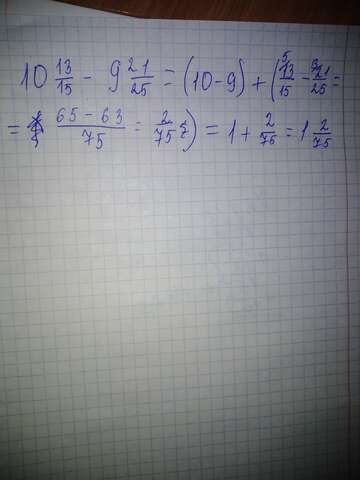 10 13/15 - 9 21/25 = (10-9) + (13/15 5 - 21/25 3 =
= 65-63/75 = 2/75) = 1 + 2/75 = 1 2/75